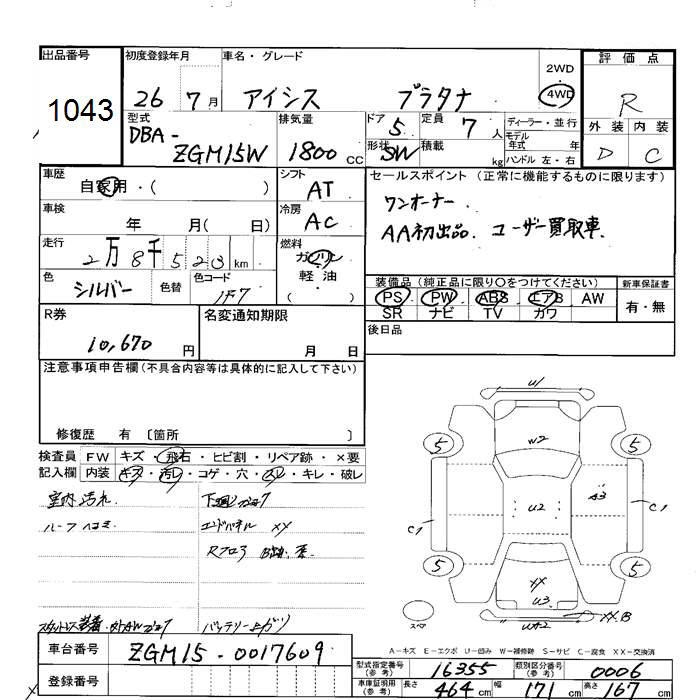 出品番号 初度登録年月 車名・グレード 評価点
1043 26 7月 アイシス プラタナ 2WD・4WD R
型式 排気量 ドア 定員 ディーラー・並行 外装 内装
DBA-ZGM15W 1800cc 5 7人 モデル年式 年 D C
形状 SW 積載 kg ハンドル 左・右
車歴 シフト セールスポイント(正常に機能するものに限ります)
自家用・( ) AT ワンオーナー.
車検 冷房
年 月( 日) AC AA初出品. ユーザー買取車.
走行 燃料
2万8千523km ガソリン・軽油 ( )
装備品(純正品に限り○をつけてください) 新車保証書
色 シルバー 色替 色コード 1F7 PS PW ABS エアB AW 有・無
SR ナビ TV カワ
R券 名変通知期限 後日品
10,670円 月 日
注意事項申告欄(不具合内容等は具体的に記入して下さい)
修復歴 有 〔箇所 〕
検査員 FW キズ・飛石・ヒビ割・リペア跡・×要
記入欄 内装 キズ・汚レ・コゲ・穴・スレ・キレ・破レ
室内汚れ. 下廻り
ルーフヘコミ エンドパネル XX
Rフロア
バッテリー上がり
U1
W2
5 5
U2 A3
C1 C1
5 5
XX
U3
XX.B
スペア
A-キズ E-エクボ U-凹み W-補修跡 S-サビ C-腐食 XX-交換済
車台番号 ZGM15-0017609
登録番号
型式指定番号(参考) 16355 類別区分番号(参考) 0006
車庫証明用(参考) 長さ 464cm 幅 171cm 高さ 167cm